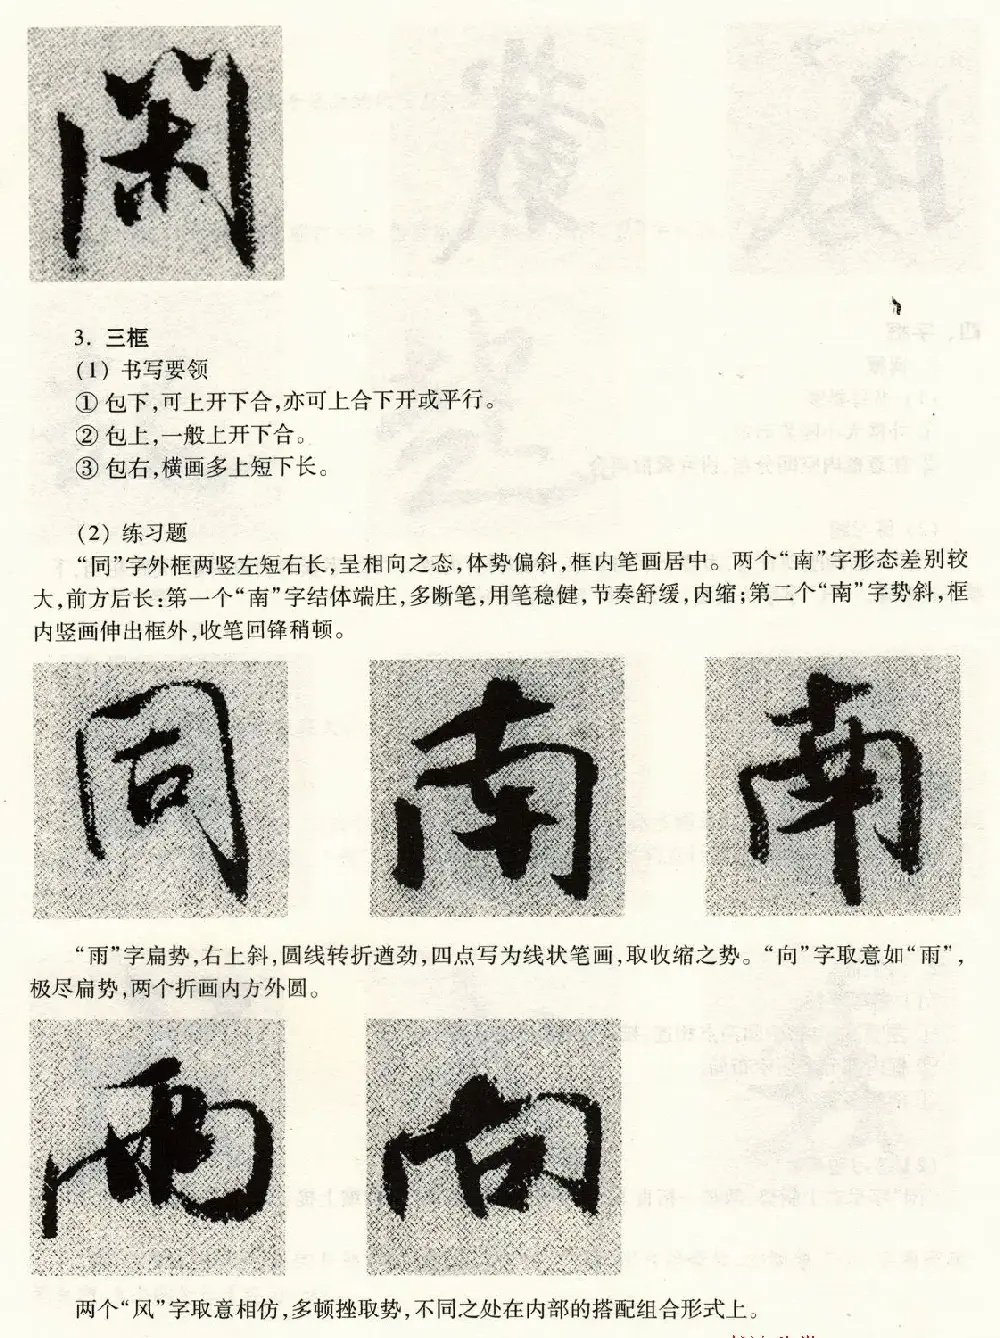 闲
3. 三框
(1) 书写要领
① 包下,可上开下合,亦可上合下开或平行。
② 包上,一般上开下合。
③ 包右,横画多上短下长。
(2) 练习题
“同”字外框两竖左短右长,呈相向之态,体势偏斜,框内笔画居中。两个“南”字形态差别较
大,前方后长:第一个“南”字结体端庄,多断笔,用笔稳健,节奏舒缓,内缩;第二个“南”字势斜,框
内竖画伸出框外,收笔回锋稍顿。
同 南 南
“雨”字扁势,右上斜,圆线转折遒劲,四点写为线状笔画,取收缩之势。“向”字取意如“雨”,
极尽扁势,两个折画内方外圆。
雨 向
两个“风”字取意相仿,多顿挫取势,不同之处在内部的搭配组合形式上。